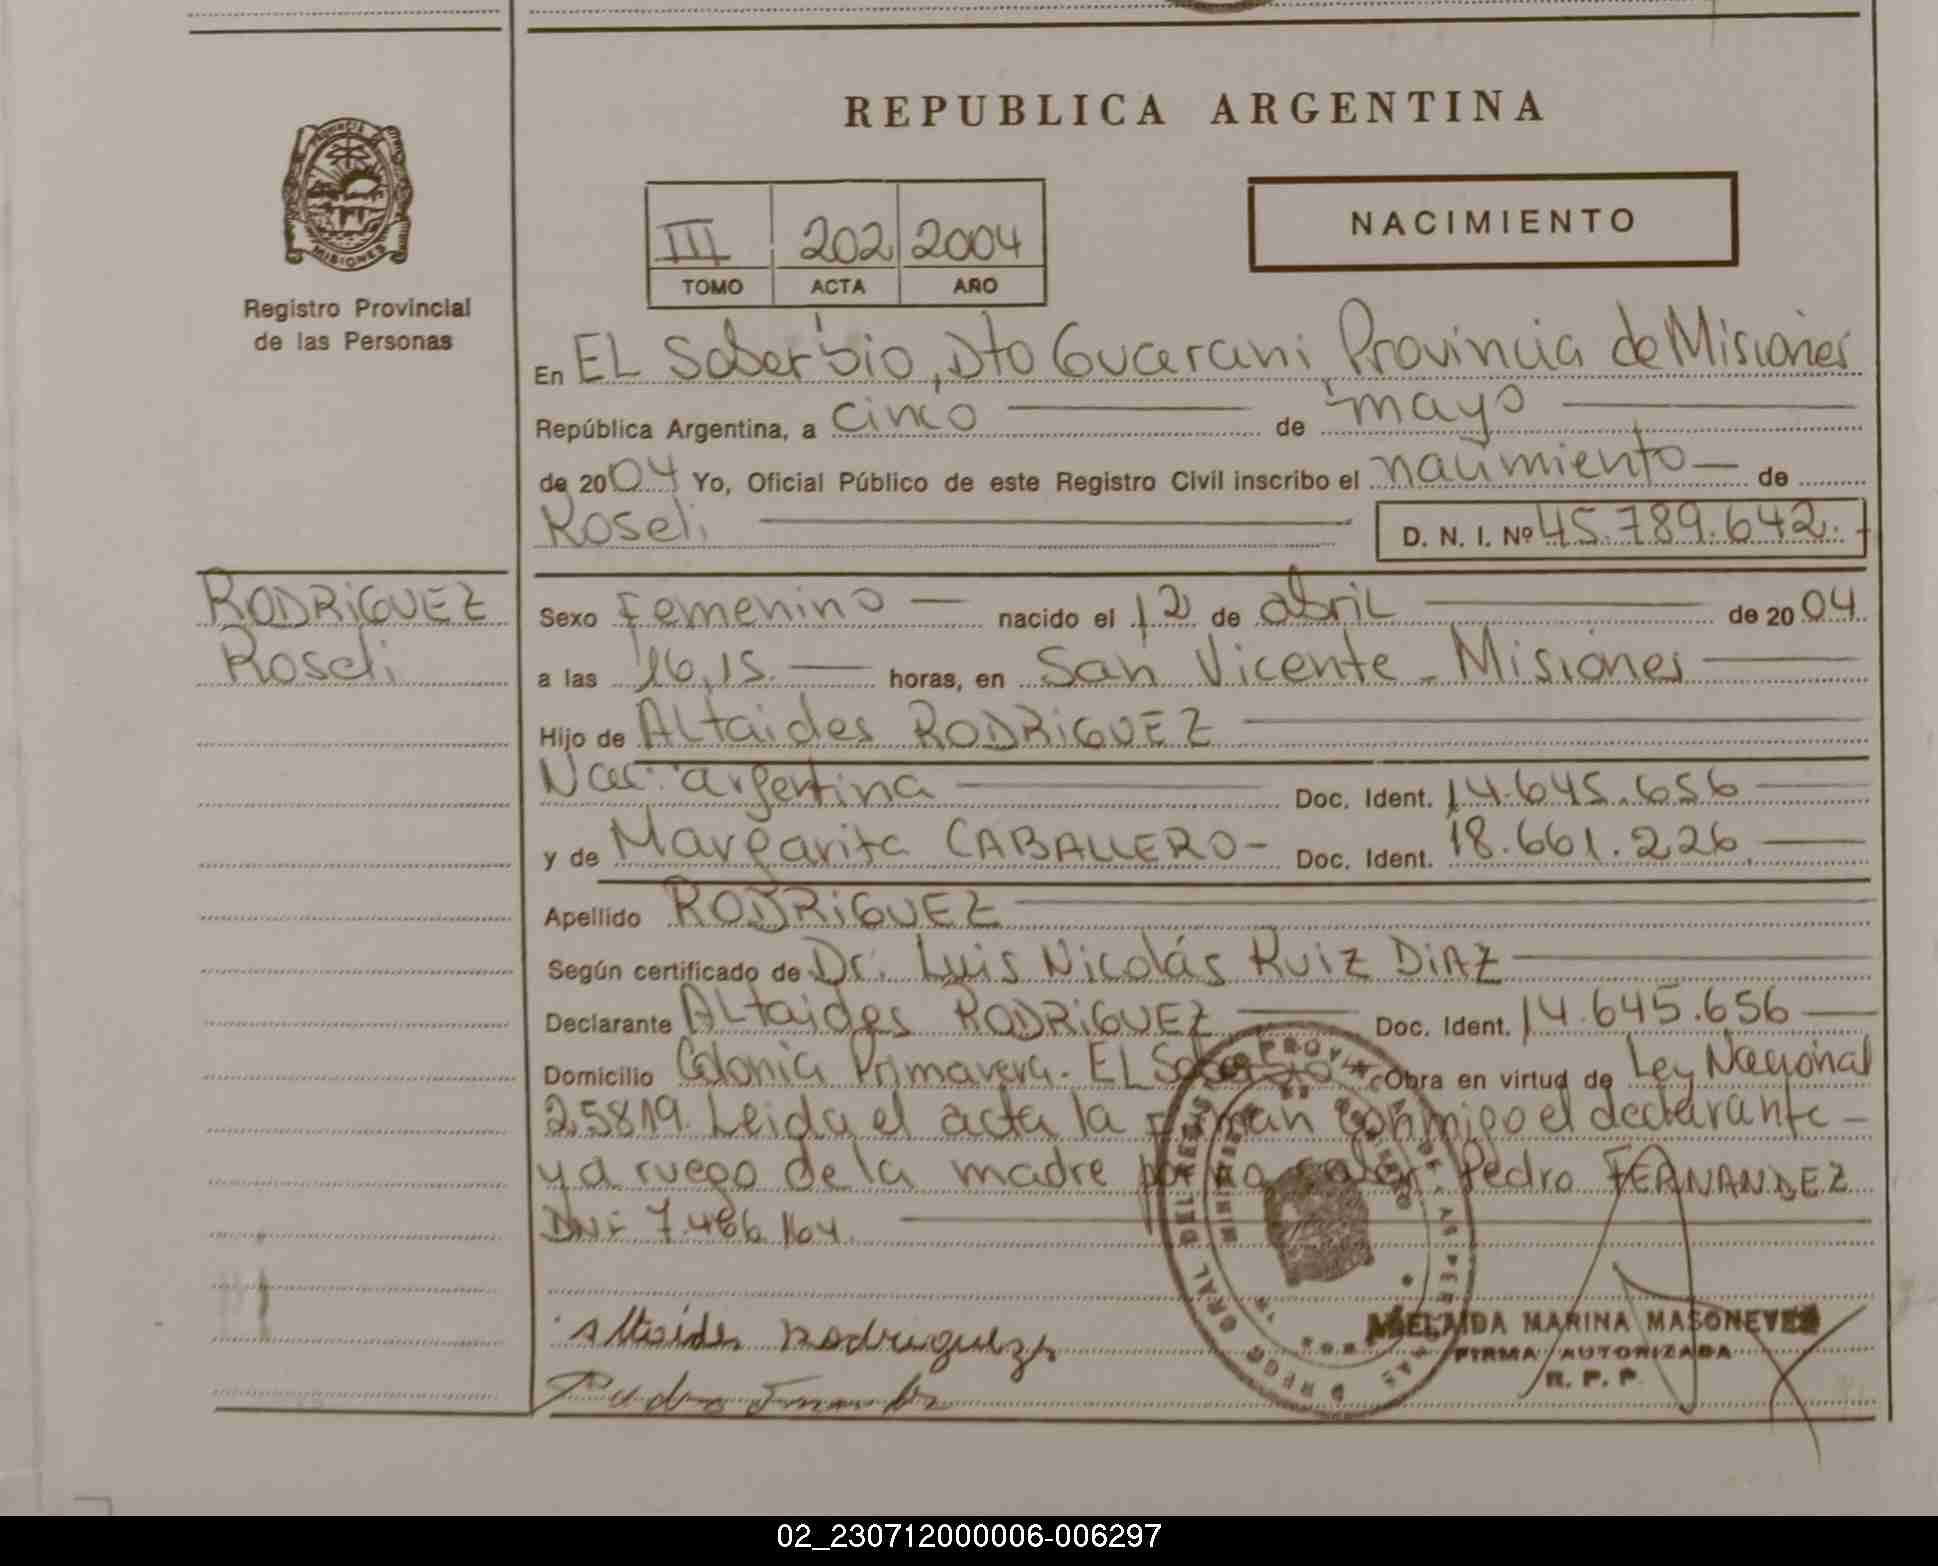 REPUBLICA ARGENTINA
PROVINCIA DE
MISIONES
Registro Provincial
de las Personas
III 202 2004
TOMO ACTA AÑO
NACIMIENTO
En EL Soberbio, Dto Guarani Provincia de Misiones
República Argentina, a cinco de mayo
de 2004 Yo, Oficial Público de este Registro Civil inscribo el nacimiento de
Roseli D. N. I. Nº 45.789.642.
RODRiGUEZ
Roseli
Sexo Femenino nacido el 12 de abril de 2004
a las 16,15. horas, en San Vicente - Misiones
Hijo de Altaides RODRiGUEZ
Nac: argentina Doc. Ident. 14.645.656
y de Margarita CABALLERO- Doc. Ident. 18.661.226
Apellido RODRiGUEZ
Según certificado de Dr. Luis Nicolás Ruiz DiAZ
Declarante Altaides RODRiGUEZ Doc. Ident. 14.645.656
Domicilio Colonia Primavera. EL Soberbio Obra en virtud de Ley Nacional
25819. Leida el acta la firman conmigo el declarante -
y a ruego de la madre por no saber Pedro FERNANDEZ
DNI- 7.486.164.
Altaides Rodriguez
ADELAIDA MARINA MASONEVES
FIRMA AUTORIZADA
R. P. P.
02_230712000006-006297